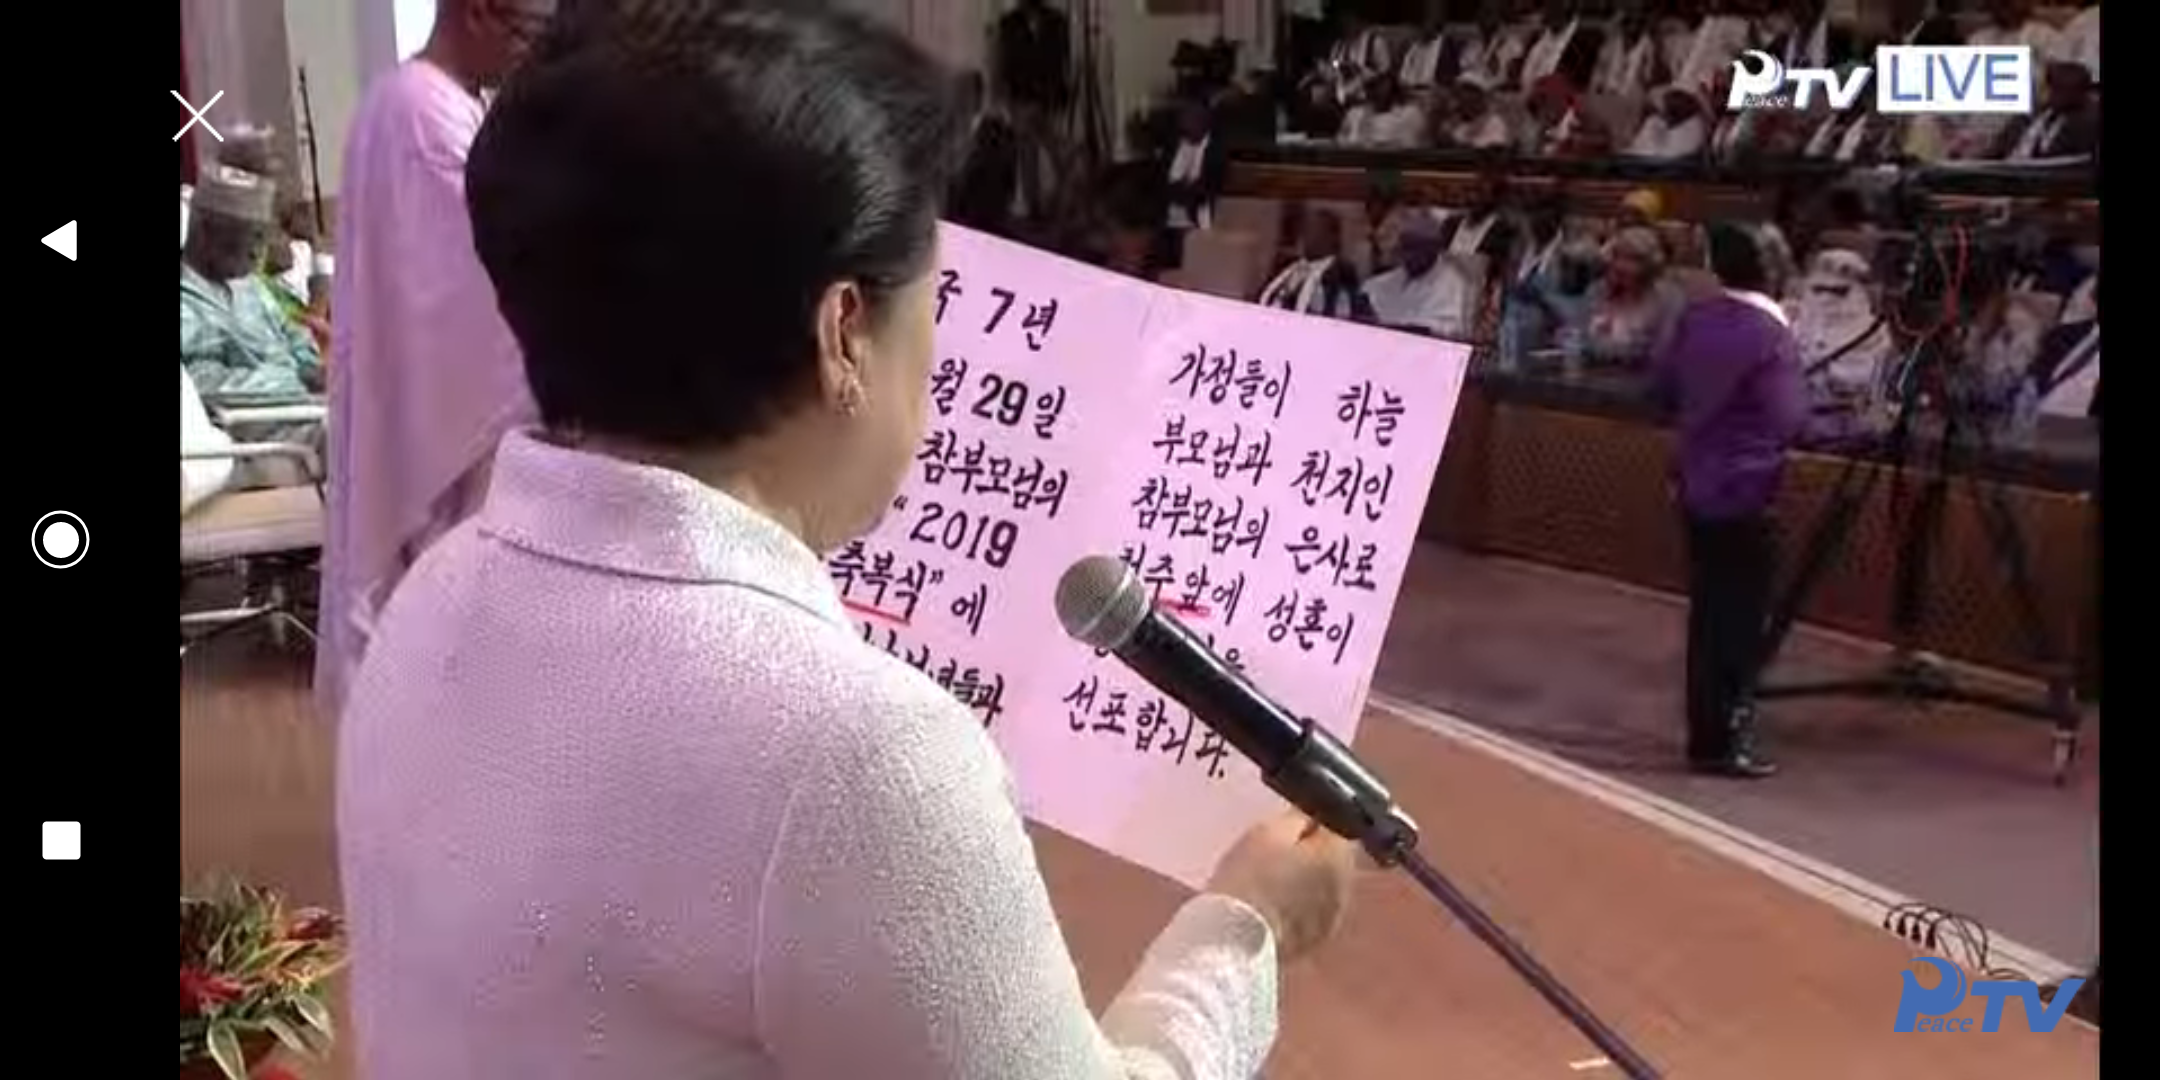 Peace TV LIVE
7년
월 29일
참부모님의
“2019
축복식”에
가정들이 하늘
부모님과 천지인
참부모님의 은사로
천주 앞에 성혼이
선포합니다.
Peace TV